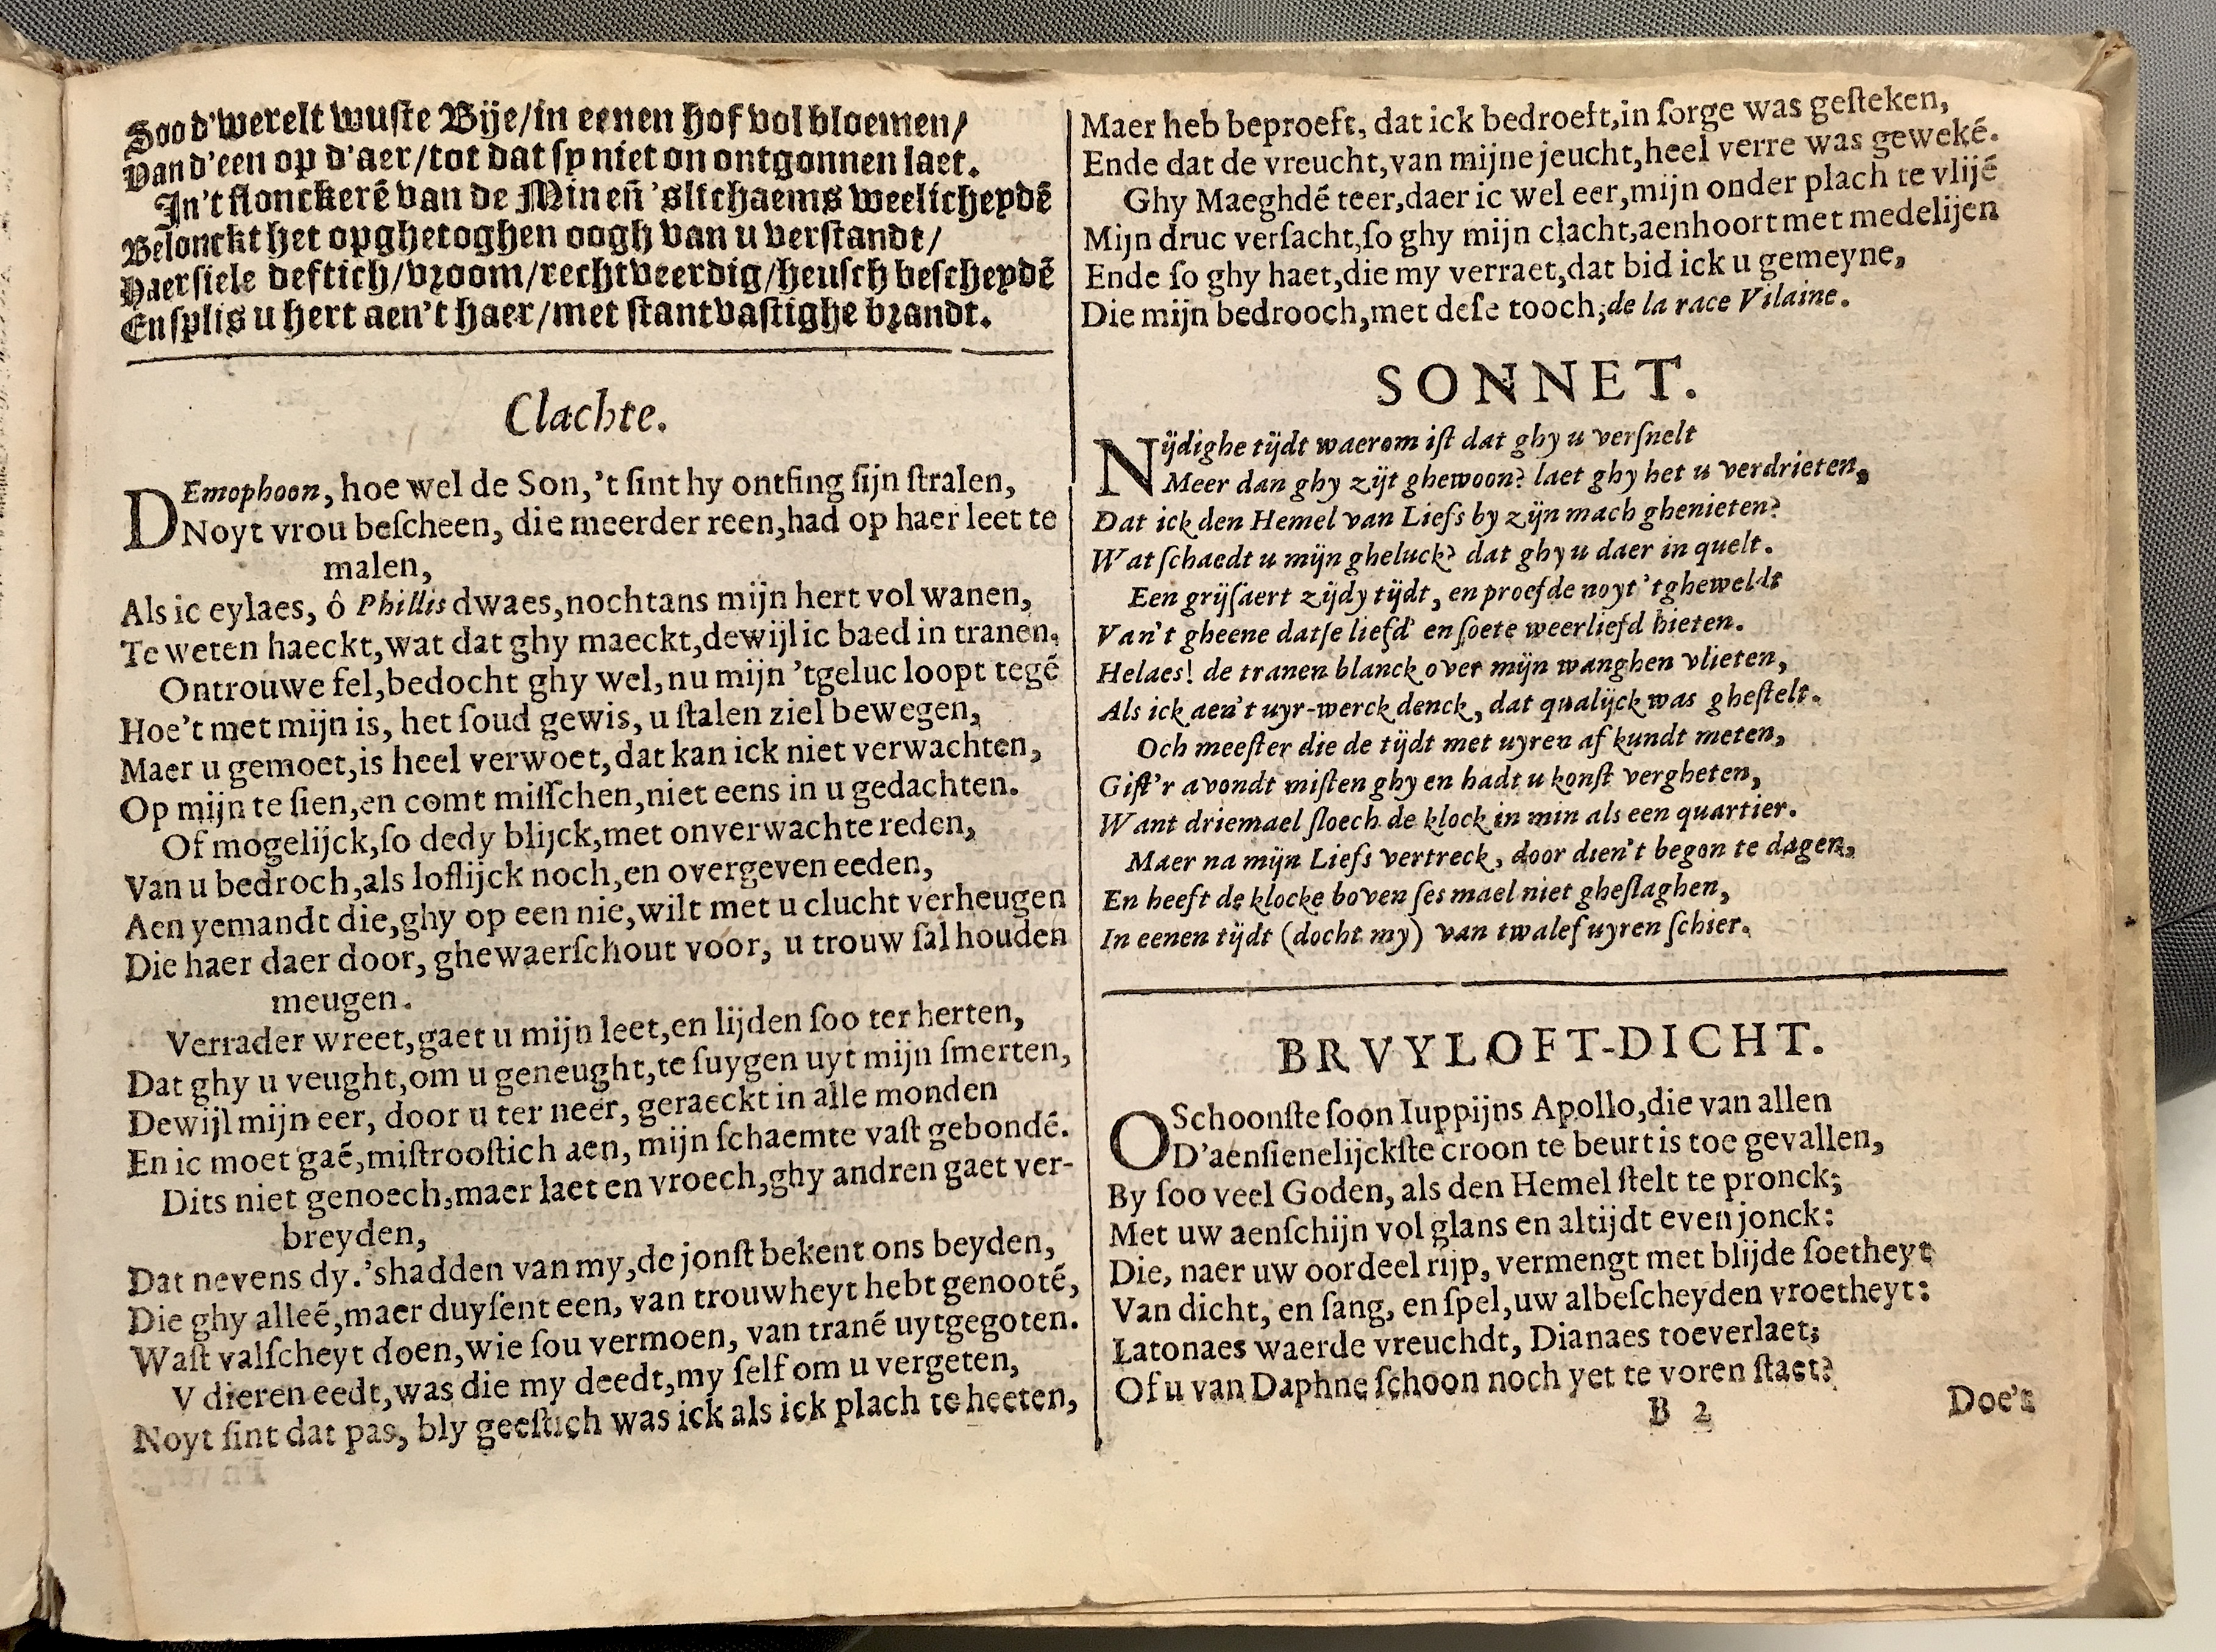 Soo d'werelt wuste Bije/in eenen hof vol bloemen/
Van d'een op d'aer/tot dat sy niet on ontgonnen laet.
In't flonckerē van de Min eñ 'slichaems weelicheydē
Belonckt het opghetoghen oogh van u verstandt/
Haer siele deftich/vroom/rechtveerdig/heusch bescheydē
En splis u hert aen't haer/met stantvastighe brandt.
Clachte.
DEmophoon, hoe wel de Son,'t sint hy ontfing sijn stralen,
Noyt vrou bescheen, die meerder reen,had op haer leet te
malen,
Als ic eylaes, ô Phillis dwaes,nochtans mijn hert vol wanen,
Te weten haeckt,wat dat ghy maeckt,dewijl ic baed in tranen.
Ontrouwe fel,bedocht ghy wel,nu mijn 'tgeluc loopt tegē
Hoe't met mijn is, het soud gewis, u stalen ziel bewegen,
Maer u gemoet,is heel verwoet,dat kan ick niet verwachten,
Op mijn te sien,en comt misschen,niet eens in u gedachten.
Of mogelijck,so dedy blijck,met onverwachte reden,
Van u bedroch,als loflijck noch,en overgeven eeden,
Aen yemandt die,ghy op een nie,wilt met u clucht verheugen
Die haer daer door, ghewaerschout voor, u trouw sal houden
meugen.
Verrader wreet,gaet u mijn leet,en lijden soo ter herten,
Dat ghy u veught,om u geneught,te suygen uyt mijn smerten,
Dewijl mijn eer, door u ter neer, geraeckt in alle monden
En ic moet gaē,mistroostich aen, mijn schaemte vast gebondē.
Dits niet genoech,maer laet en vroech,ghy andren gaet ver-
breyden,
Dat nevens dy.'shadden van my,de jonst bekent ons beyden,
Die ghy alleē,maer duysent een, van trouwheyt hebt genootē,
Wast valscheyt doen,wie sou vermoen, van tranē uytgegoten.
V dieren eedt,was die my deedt,my self om u vergeten,
Noyt sint dat pas, bly geestich was ick als ick plach te heeten,
Maer heb beproeft, dat ick bedroeft,in sorge was gesteken,
Ende dat de vreucht,van mijne jeucht,heel verre was gewekē.
Ghy Maeghdē teer,daer ic wel eer,mijn onder plach te vlijē
Mijn druc versacht,so ghy mijn clacht,aenhoort met medelijen
Ende so ghy haet,die my verraet,dat bid ick u gemeyne,
Die mijn bedrooch,met dese tooch;de la race Vilaine.
SONNET.
Nijdighe tijdt waerom ist dat ghy u versnelt
Meer dan ghy zijt ghewoon? laet ghy het u verdrieten,
Dat ick den Hemel van Liefs by zijn mach ghenieten?
Wat schaedt u mijn gheluck? dat ghy u daer in quelt.
Een grijsaert zijdy tijdt, en proefde noyt 'tgheweldt
Van't gheene datse liefd' en soete weerliefd hieten.
Helaes! de tranen blanck over mijn wanghen vlieten,
Als ick aen't uyr-werck denck, dat qualijck was ghestelt.
Och meester die de tijdt met uyren af kundt meten,
Gist'r avondt misten ghy en hadt u konst vergheten,
Want driemael sloech de klock in min als een quartier.
Maer na mijn Liefs vertreck, door dien't begon te dagen,
En heeft de klocke boven ses mael niet gheslaghen,
In eenen tijdt (docht my) van twalef uyren schier.
BRVYLOFT-DICHT.
O Schoonste soon Iuppijns Apollo,die van allen
D'aensienelijckste croon te beurt is toe gevallen,
By soo veel Goden, als den Hemel stelt te pronck;
Met uw aenschijn vol glans en altijdt even jonck:
Die, naer uw oordeel rijp, vermengt met blijde soetheyt
Van dicht, en sang, en spel,uw albescheyden vroetheyt:
Latonaes waerde vreuchdt, Dianaes toeverlaet;
Of u van Daphne schoon noch yet te voren staet?
B 2
Doe't